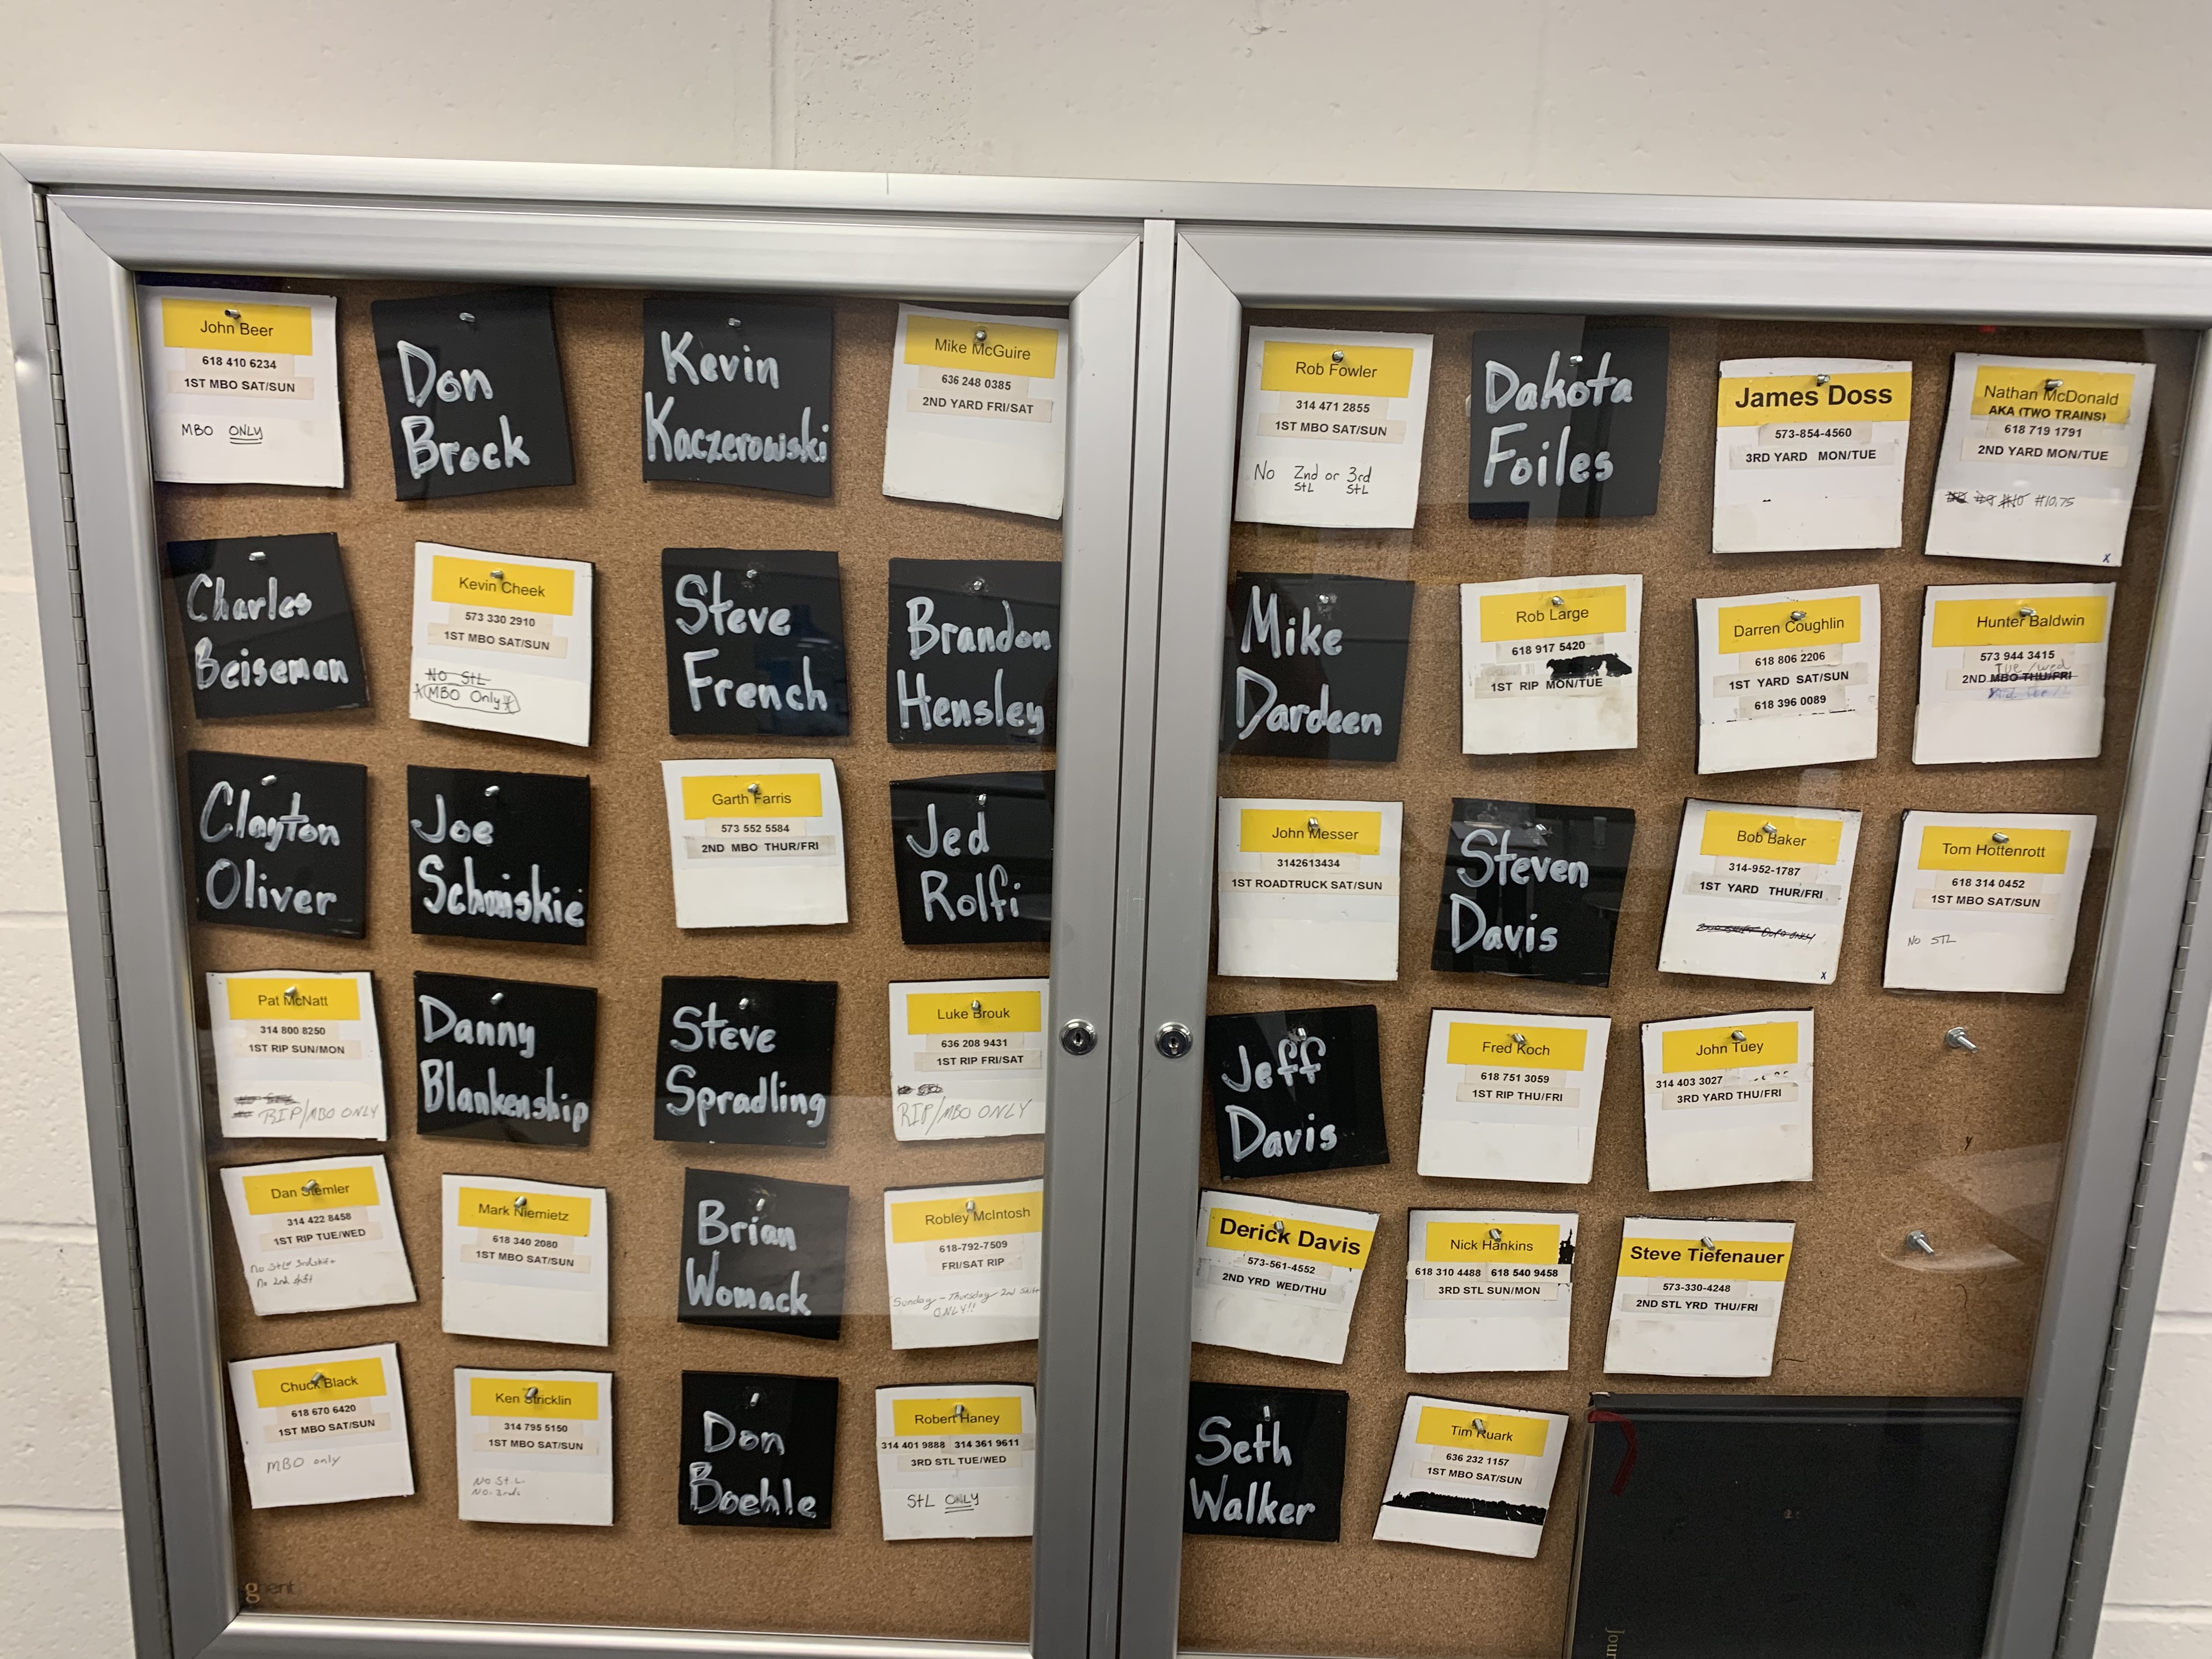 John Beer
618 410 6234
1ST MBO SAT/SUN
MBO ONLY
Don
Brock
Kevin
Kaczerowski
Mike McGuire
636 248 0385
2ND YARD FRI/SAT
Rob Fowler
314 471 2855
1ST MBO SAT/SUN
No 2nd or 3rd
StL StL
Dakota
Foiles
James Doss
573-854-4560
3RD YARD MON/TUE
Nathan McDonald
AKA (TWO TRAINS)
618 719 1791
2ND YARD MON/TUE
#10.75
X
Charles
Beiseman
Kevin Cheek
573 330 2910
1ST MBO SAT/SUN
No StL
MBO Only
Steve
French
Brandon
Hensley
Mike
Dardeen
Rob Large
618 917 5420
1ST RIP MON/TUE
Darren Coughlin
618 806 2206
1ST YARD SAT/SUN
618 396 0089
Hunter Baldwin
573 944 3415
Tue/Wed
2ND MBO THU/FRI
Clayton
Oliver
Joe
Schmiskie
Garth Farris
573 552 5584
2ND MBO THUR/FRI
Jed
Rolfi
John Messer
3142613434
1ST ROADTRUCK SAT/SUN
Steven
Davis
Bob Baker
314-952-1787
1ST YARD THUR/FRI
X
Tom Hottenrott
618 314 0452
1ST MBO SAT/SUN
No STL
Pat McNatt
314 800 8250
1ST RIP SUN/MON
RIP/MBO ONLY
Danny
Blankenship
Steve
Spradling
Luke Brouk
636 208 9431
1ST RIP FRI/SAT
RIP/MBO ONLY
Jeff
Davis
Fred Koch
618 751 3059
1ST RIP THU/FRI
John Tuey
314 403 3027
3RD YARD THU/FRI
Dan Stemler
314 422 8458
1ST RIP TUE/WED
No StL 3rd shift
No 2nd shift
Mark Niemietz
618 340 2080
1ST MBO SAT/SUN
Brian
Womack
Robley McIntosh
618-792-7509
FRI/SAT RIP
Sunday - Thursday 2nd Shift
ONLY!!
Derick Davis
573-561-4552
2ND YRD WED/THU
Nick Hankins
618 310 4488 618 540 9458
3RD STL SUN/MON
Steve Tiefenauer
573-330-4248
2ND STL YRD THU/FRI
Chuck Black
618 670 6420
1ST MBO SAT/SUN
MBO only
Ken Stricklin
314 795 5150
1ST MBO SAT/SUN
No St.L.
No 2nds
Don
Boehle
Robert Haney
314 401 9888 314 361 9611
3RD STL TUE/WED
StL ONLY
Seth
Walker
Tim Ruark
636 232 1157
1ST MBO SAT/SUN
ghent
Jour